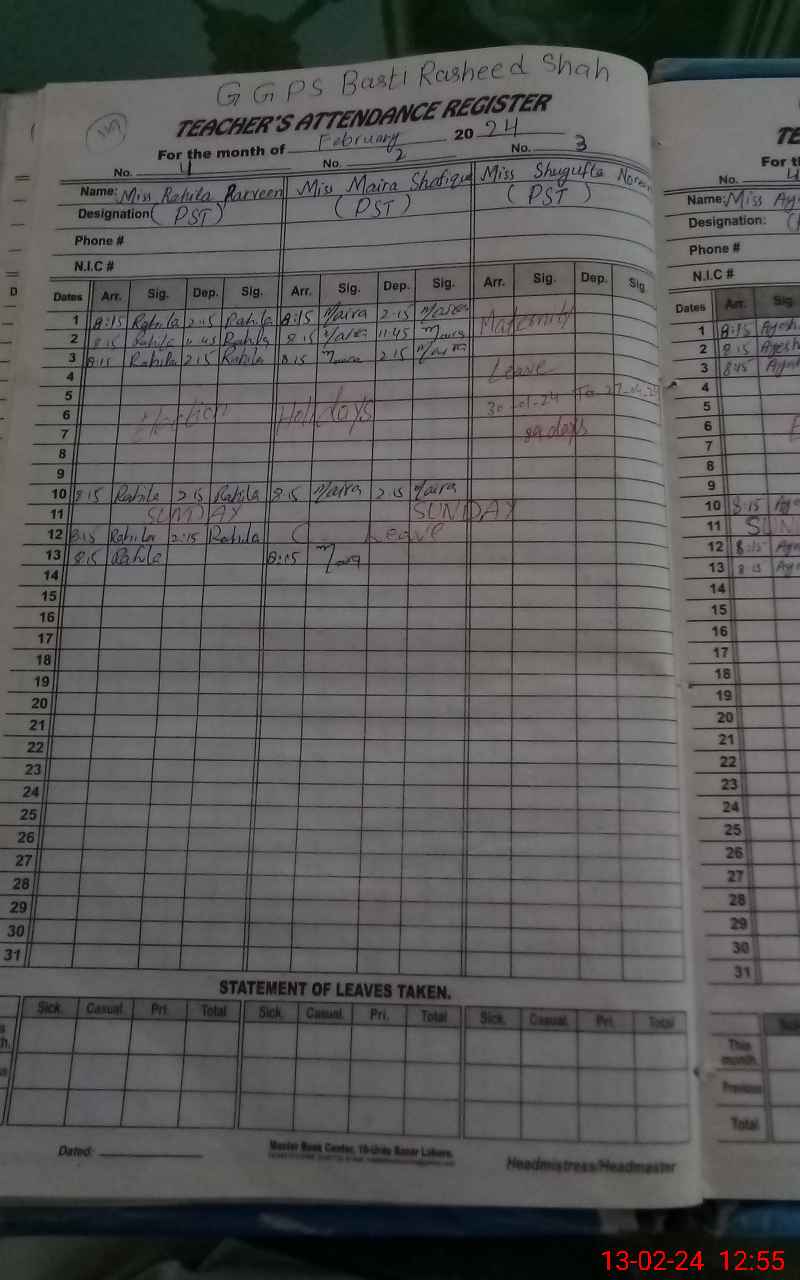 GGPS Basti Rasheed Shah
TEACHER'S ATTENDANCE REGISTER
For the month of February 2024
No. 2 No. 3
Name: Miss Rahila Parveen Miss Maira Shafique Miss Shugufta Noreen
Designation (PST) (PST) (PST)
Phone #
N.I.C #
Dates Arr. Sig. Dep. Sig. Arr. Sig. Dep. Sig. Arr. Sig. Dep. Sig
1 8:15 Rahila 2:15 Rahila 8:15 Maira 2:15 Maira Maternity
2 8:15 Rahila 11:45 Rahila 8:15 Maira 11:45 Maira
3 8:15 Rahila 2:15 Rahila 8:15 Maira 2:15 Maira
4 Leave
5
6 Election Holidays 30-01-24 To
7 days
8
9
10 8:15 Rahila 2:15 Rahila 8:15 Maira 2:15 Maira
11 SUNDAY SUNDAY
12 8:15 Rahila 2:15 Rahila C. Leave
13 8:15 Rahila 8:15 Maira
14
15
16
17
18
19
20
21
22
23
24
25
26
27
28
29
30
31
STATEMENT OF LEAVES TAKEN.
Sick. Casual. Pri. Total Sick. Casual. Pri. Total Sick. Casual. Pri. Total
Dated:
Master Book Center, 10-Urdu Bazar Lahore.
Headmistress/Headmaster
TE
For t
No. 4
Name: Miss Ay
Designation:
Phone #
N.I.C #
Dates Arr. Sig.
1 8:15 Ayesh
2 8:15 Ayesh
3 8:15 Ayesh
4
5
6
7
8
9
10 8:15
11 SUN
12 8:15 Aye
13 8:15 Aye
14
15
16
17
18
19
20
21
22
23
24
25
26
27
28
29
30
31
This month.
Previous
Total
13-02-24 12:55